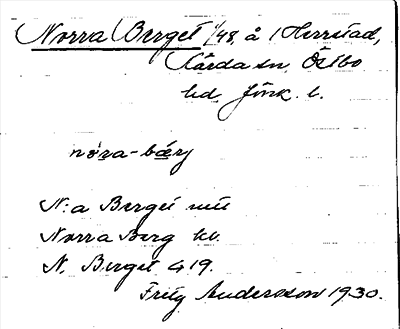 Norra Berget 1/48, å 1 Herrstad,
Kärda sn, Östbo
hd, Jönk. l.
nǫra-bærj
N:a Berget
Norra Berg kb.
N. Berget 419.
Fritz Andersson 1930.